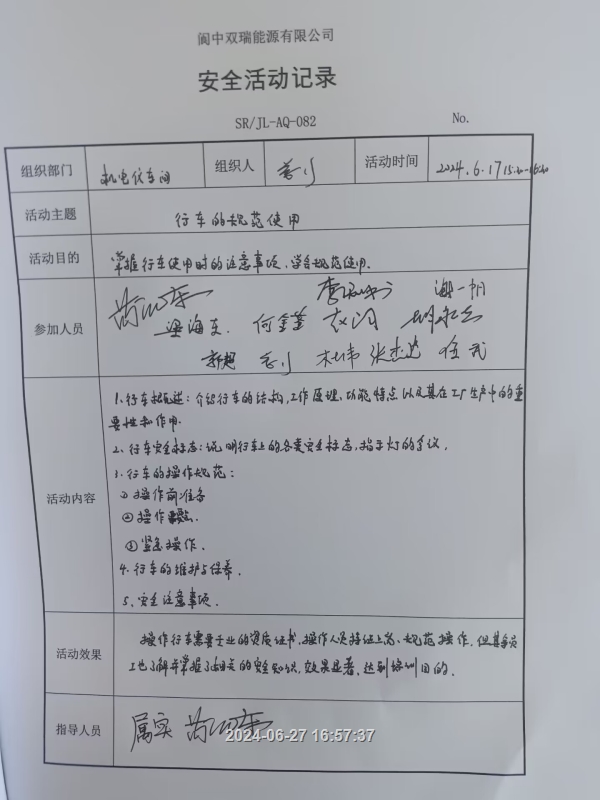 阆中双瑞能源有限公司
安全活动记录
SR/JL-AQ-082 No.
组织部门 机电仪车间 组织人 活动时间 2024.6.17
活动主题 行车的规范使用
活动目的 掌握行车使用时的注意事项、学会规范使用.
参加人员
梁海东. 何金奎
郭超 杜伟 张杰
活动内容
1.行车概述：介绍行车的结构,工作原理、功能特点以及其在工厂生产中的重
要性和作用.
2、行车安全标志：说明行车上的各类安全标志,指示灯的含议.
3.行车的操作规范：
①操作前准备
②操作
③紧急操作.
4.行车的维护与保养.
5、安全注意事项.
活动效果
操作行车需要专业的资质证书、操作人员持证上岗、规范操作.但其余员
工也了解并掌握了相关的安全知识、效果显著、达到培训目的.
指导人员 属实
2024-06-27 16:57:37